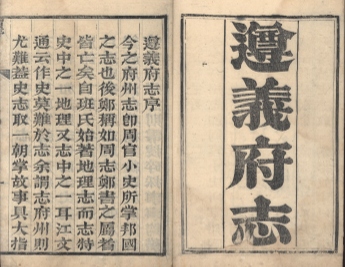 遵義府志
遵義府志序
今之府州志卽周官小史所掌邦國
之志也後鄭稱如周志鄭書之屬者
皆亡矣自班氏始著地理志而志特
史中之一地理又志中之一耳江文
通云作史莫難於志余謂志府州則
尤難蓋史志取一朝掌故事具大指